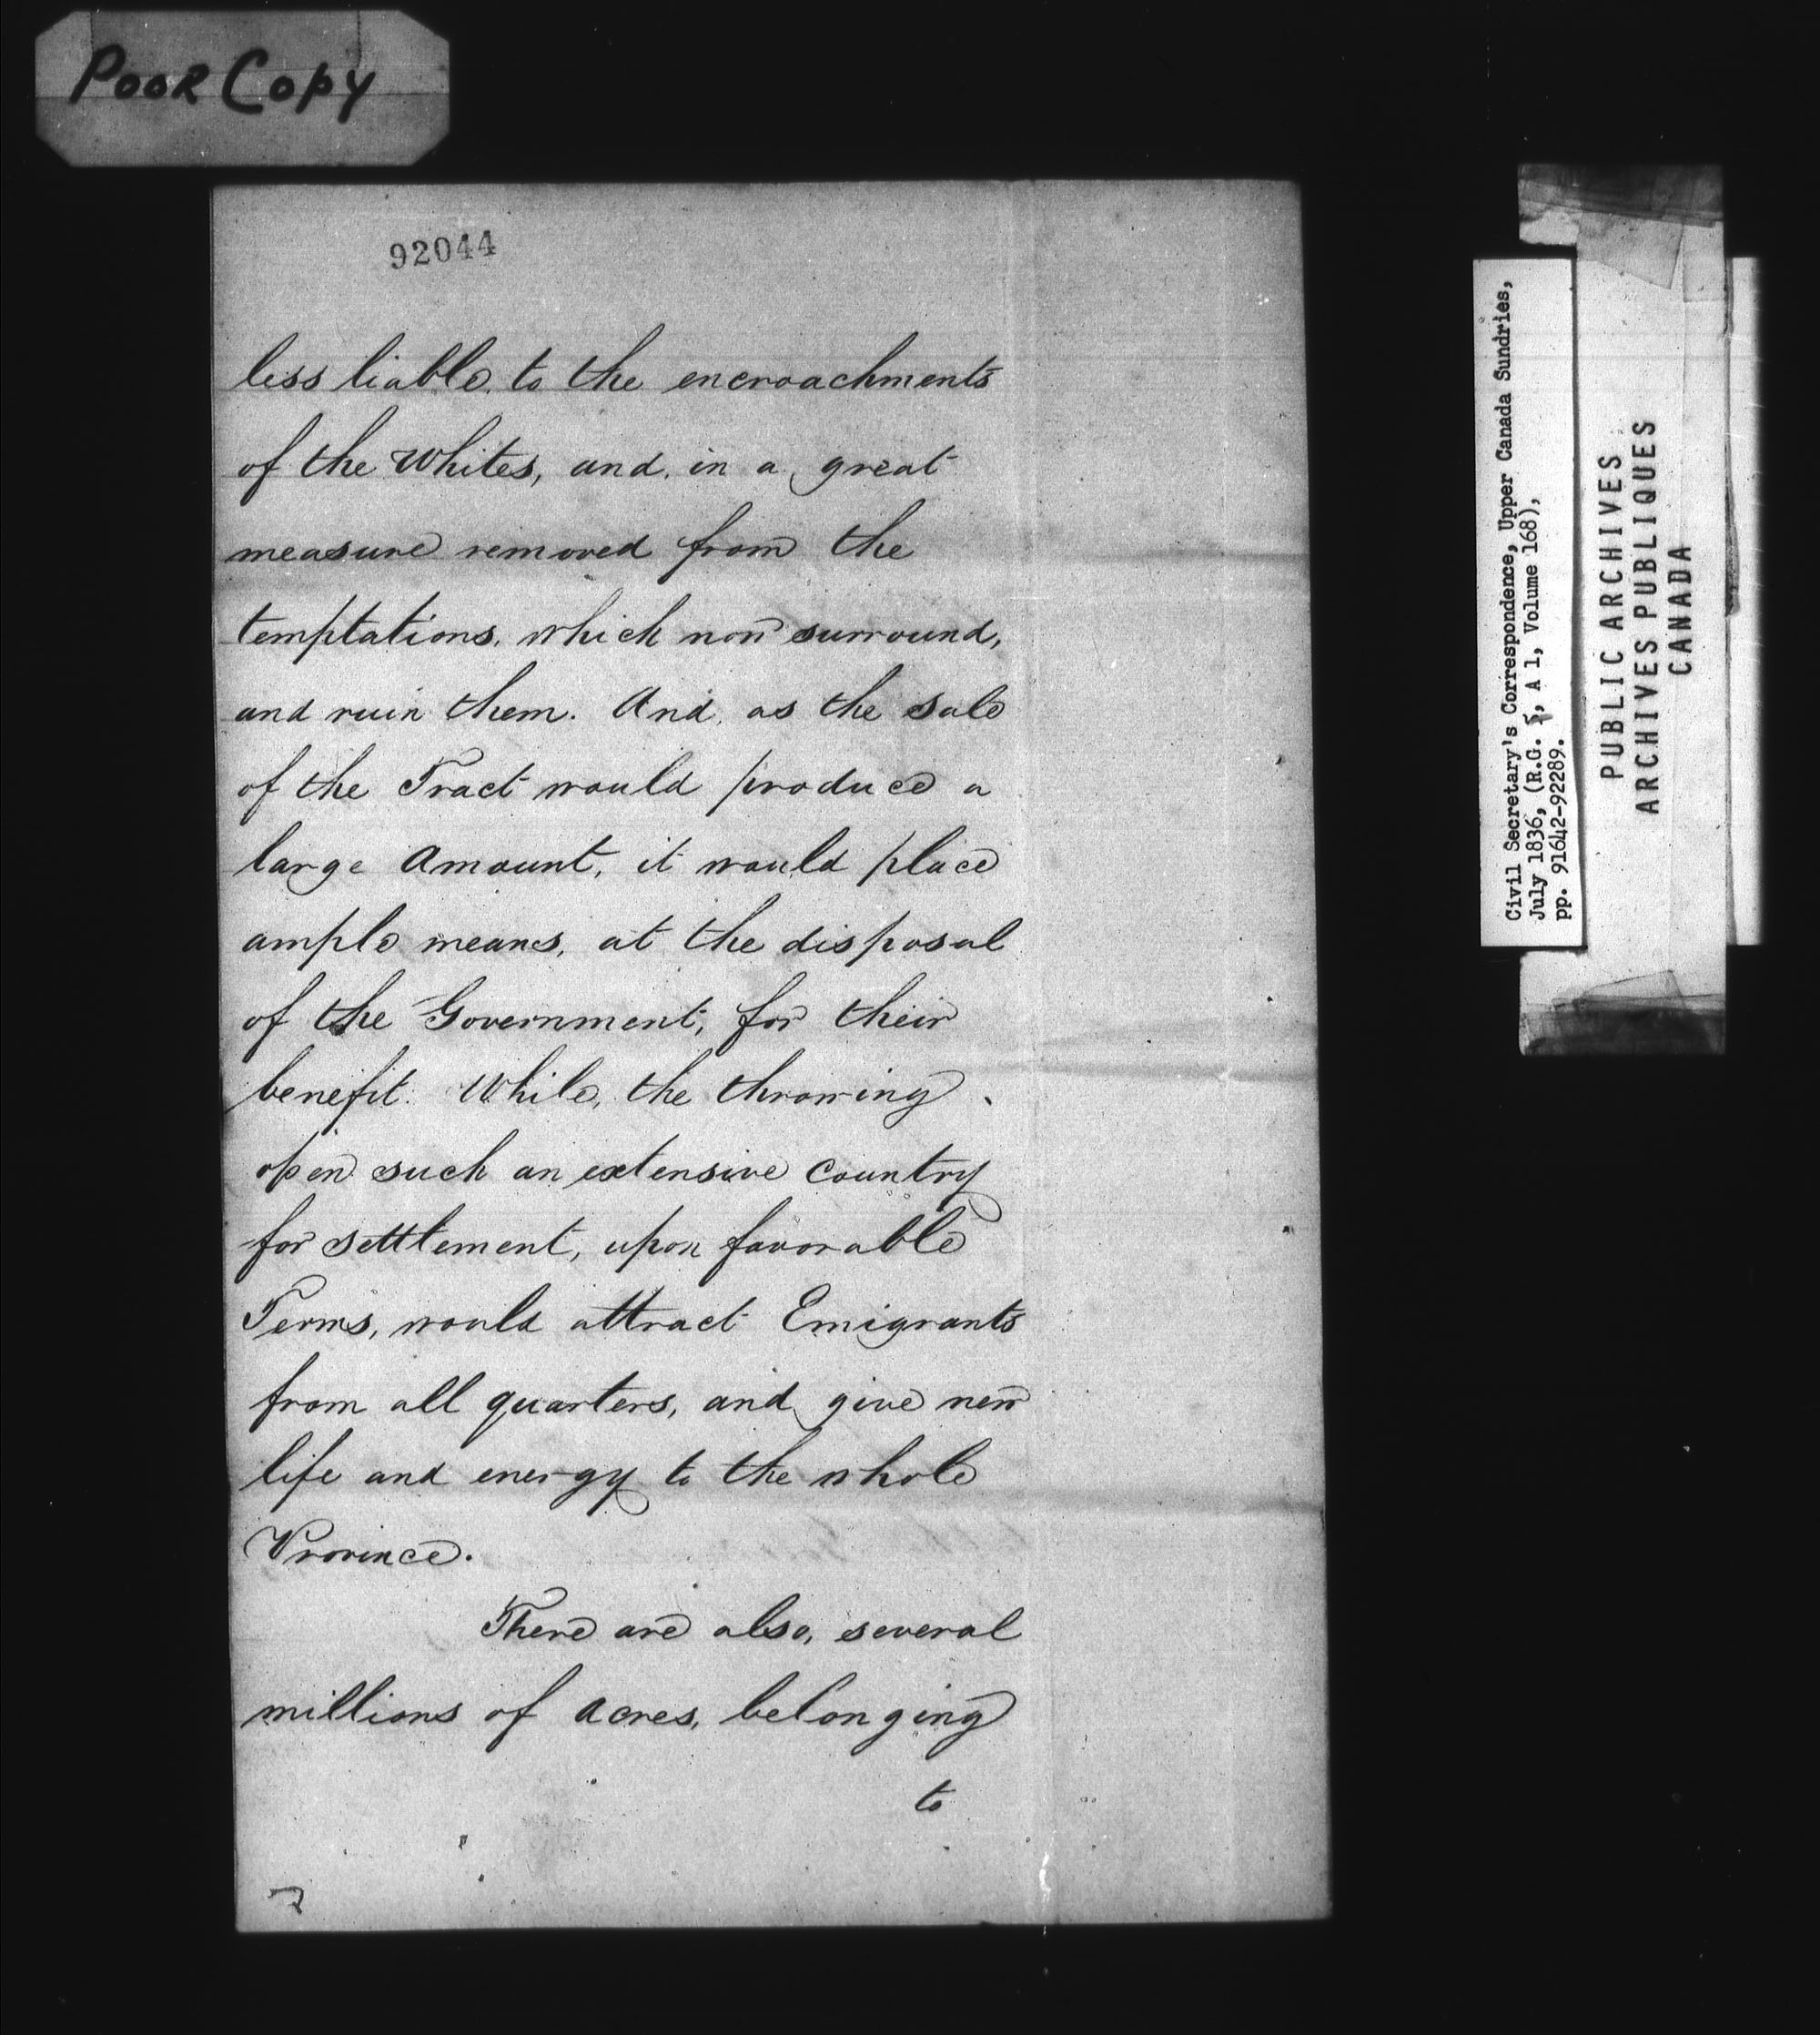 Poor Copy
92044
less liable, to the encroachments
of the Whites, and, in a great
measure removed from the
temptations, which now surround,
and ruin them. And, as the sale
of the Tract would produce a
large Amount, it would place
ample means, at the disposal
of the Government, for their
benefit. While, the throwing
open such an extensive Country
for settlement, upon favorable
Terms, would attract Emigrants
from all quarters, and give new
life and energy to the whole
Province.
There are also, several
millions of acres, belonging
to
Civil Secretary's Correspondence, Upper Canada Sundries,
July 1836, (R.G. 5, A 1, Volume 168),
pp. 91642-92289.
PUBLIC ARCHIVES
ARCHIVES PUBLIQUES
CANADA